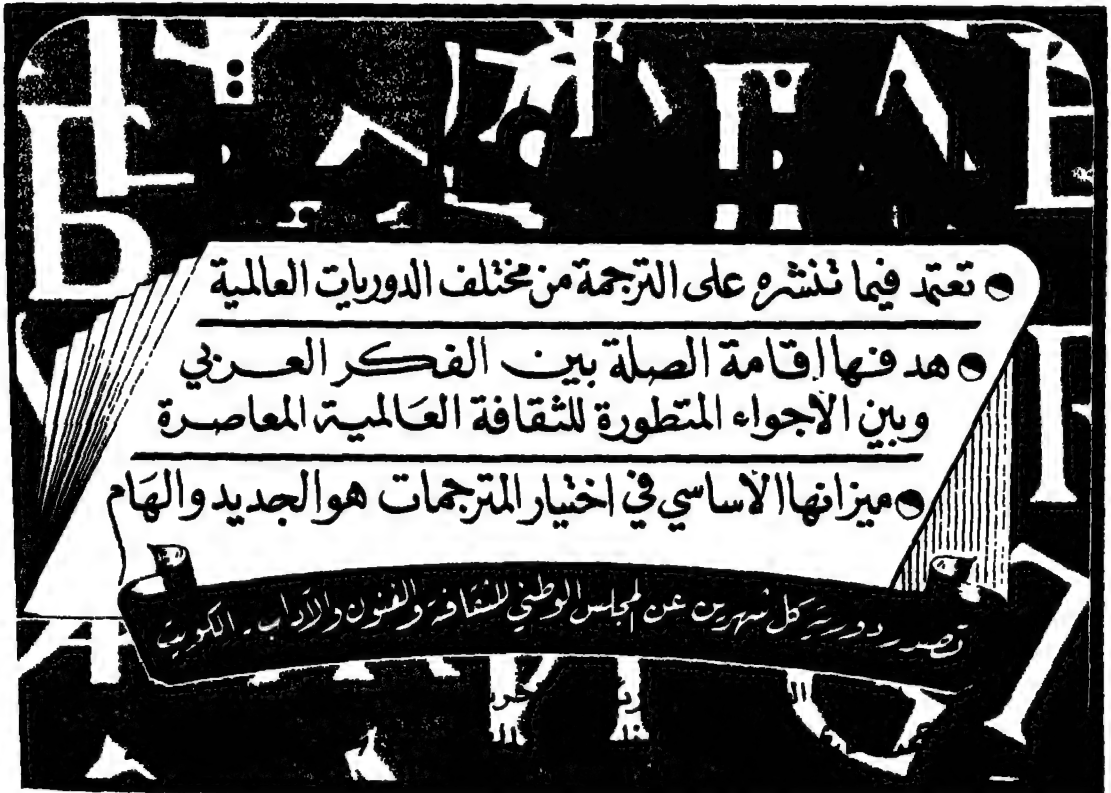 تعتمد فيما تنشره على الترجمة من مختلف الدوريات العالمية
هدفها إقامة الصلة بين الفكر العربي
وبين الأجواء المتطورة للثقافة العالمية المعاصرة
ميزانها الأساسي في اختيار المترجمات هو الجديد والهام
تصدر دورية كل شهرين عن المجلس الوطني للثقافة والفنون والآداب - الكويت